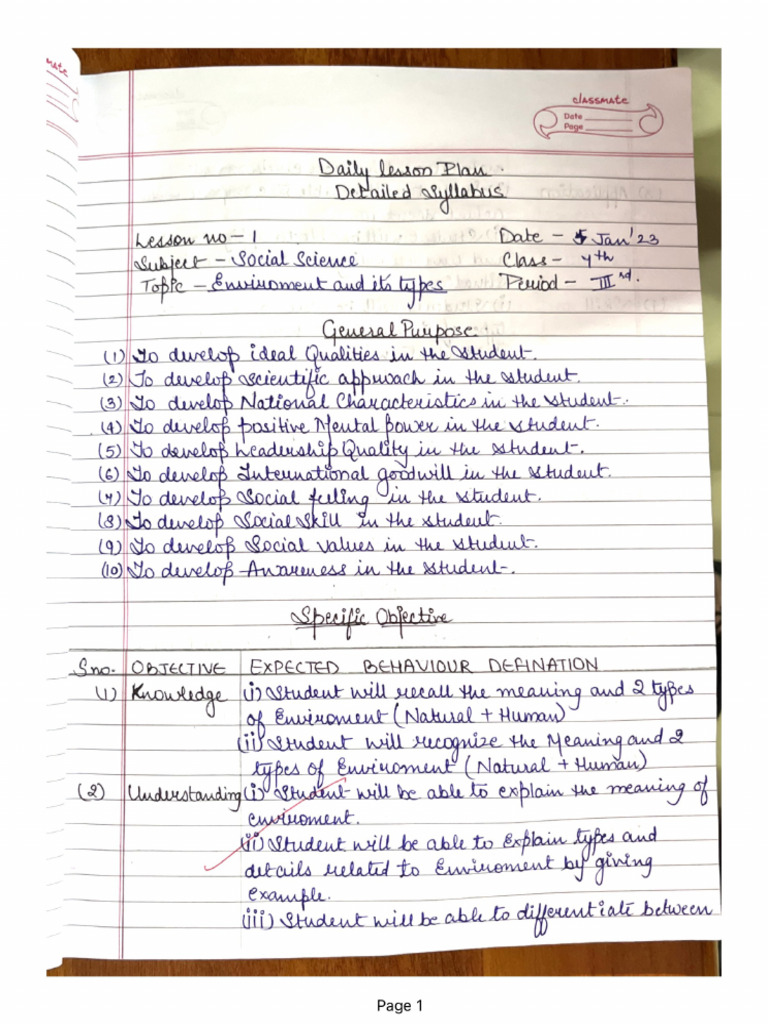 classmate
Date
Page
Daily Lesson Plan
Detailed Syllabus
Lesson no - 1 Date - 5 Jan'23
Subject - Social Science Class - 7th
Topic - Enviroment and its types Period - IIIrd.
General Purpose
(1) To develop ideal Qualities in the student.
(2) To develop scientific approach in the student.
(3) To develop National Characteristics in the student.
(4) To develop positive Mental power in the student.
(5) To develop Leadership Quality in the student.
(6) To develop International goodwill in the student.
(7) To develop Social feeling in the student.
(8) To develop Social Skill in the student.
(9) To develop Social values in the student.
(10) To develop Awareness in the student.
Specific Objective
Sno. OBJECTIVE EXPECTED BEHAVIOUR DEFINATION
(1) Knowledge (i) Student will recall the meaning and 2 types
of Enviroment (Natural + Human)
(ii) Student will recognize the Meaning and 2
types of Enviroment (Natural + Human)
(2) Understanding (i) Student will be able to explain the meaning of
enviroment.
(ii) Student will be able to Explain types and
details related to Enviroment by giving
example.
(iii) Student will be able to differentiate between
Page 1